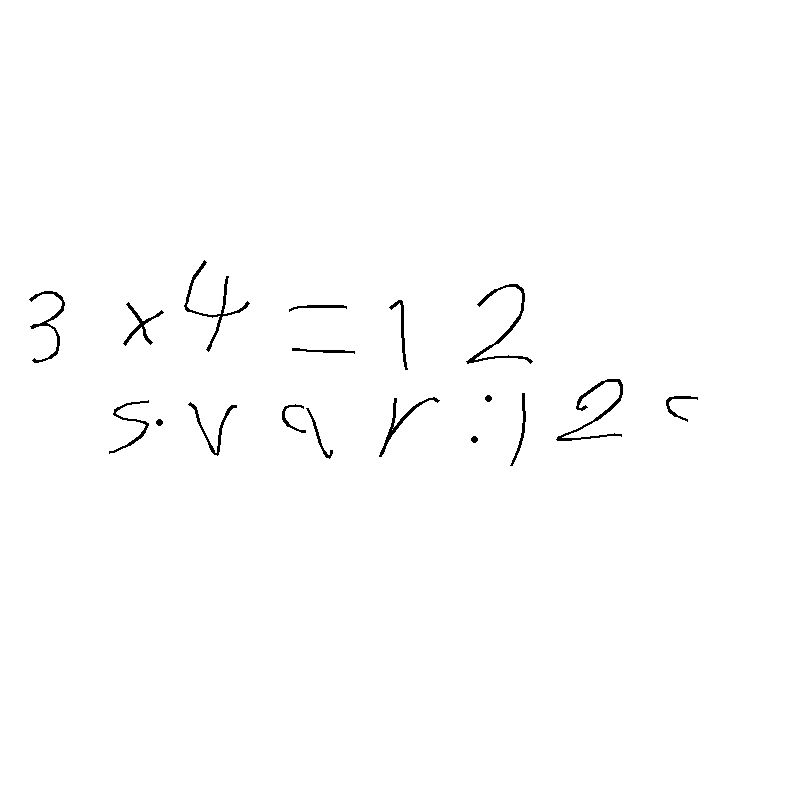 3 x 4 = 12
s.var : 12 c